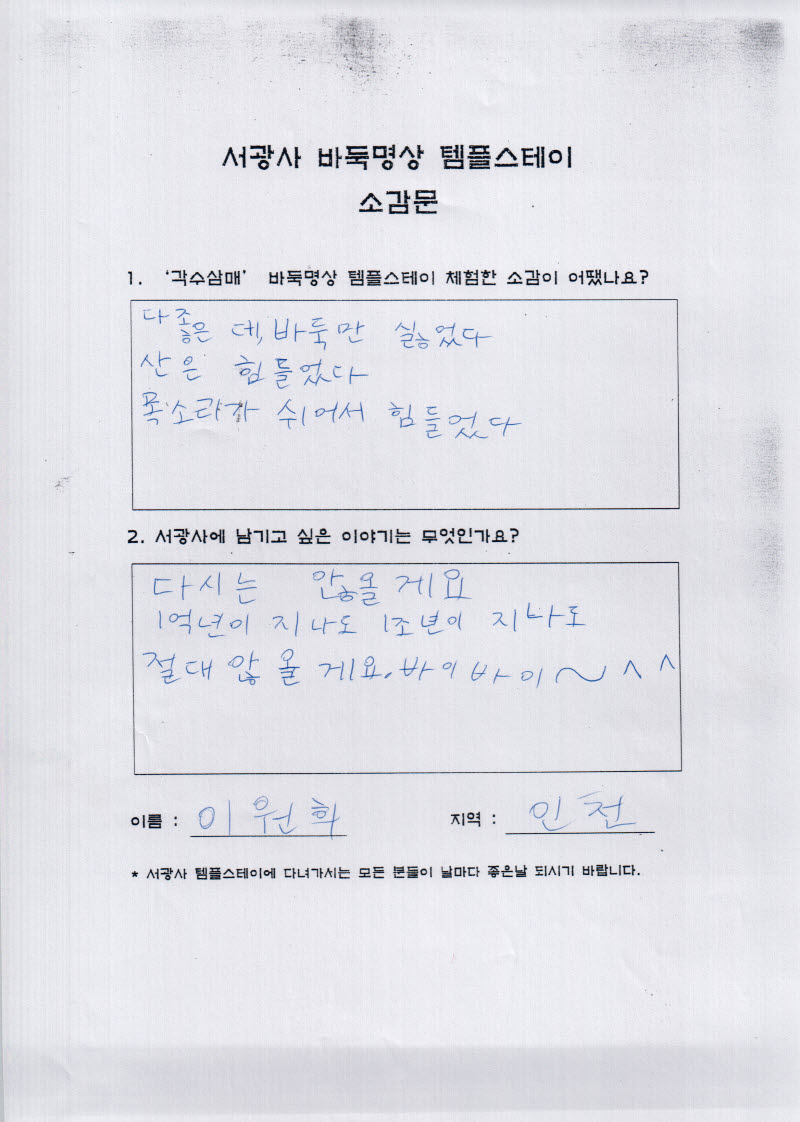 서광사 바둑명상 템플스테이
소감문
1. '각수삼매' 바둑명상 템플스테이 체험한 소감이 어땠나요?
다 좋은 데, 바둑만 싫었다
산은 힘들었다
목소리가 쉬어서 힘들었다
2. 서광사에 남기고 싶은 이야기는 무엇인가요?
다시는 않올게요
1억년이 지나도 1조년이 지나도
절대 않올게요. 바이바이~^^
이름 : 이원희 지역 : 인천
* 서광사 템플스테이에 다녀가시는 모든 분들이 날마다 좋은날 되시기 바랍니다.